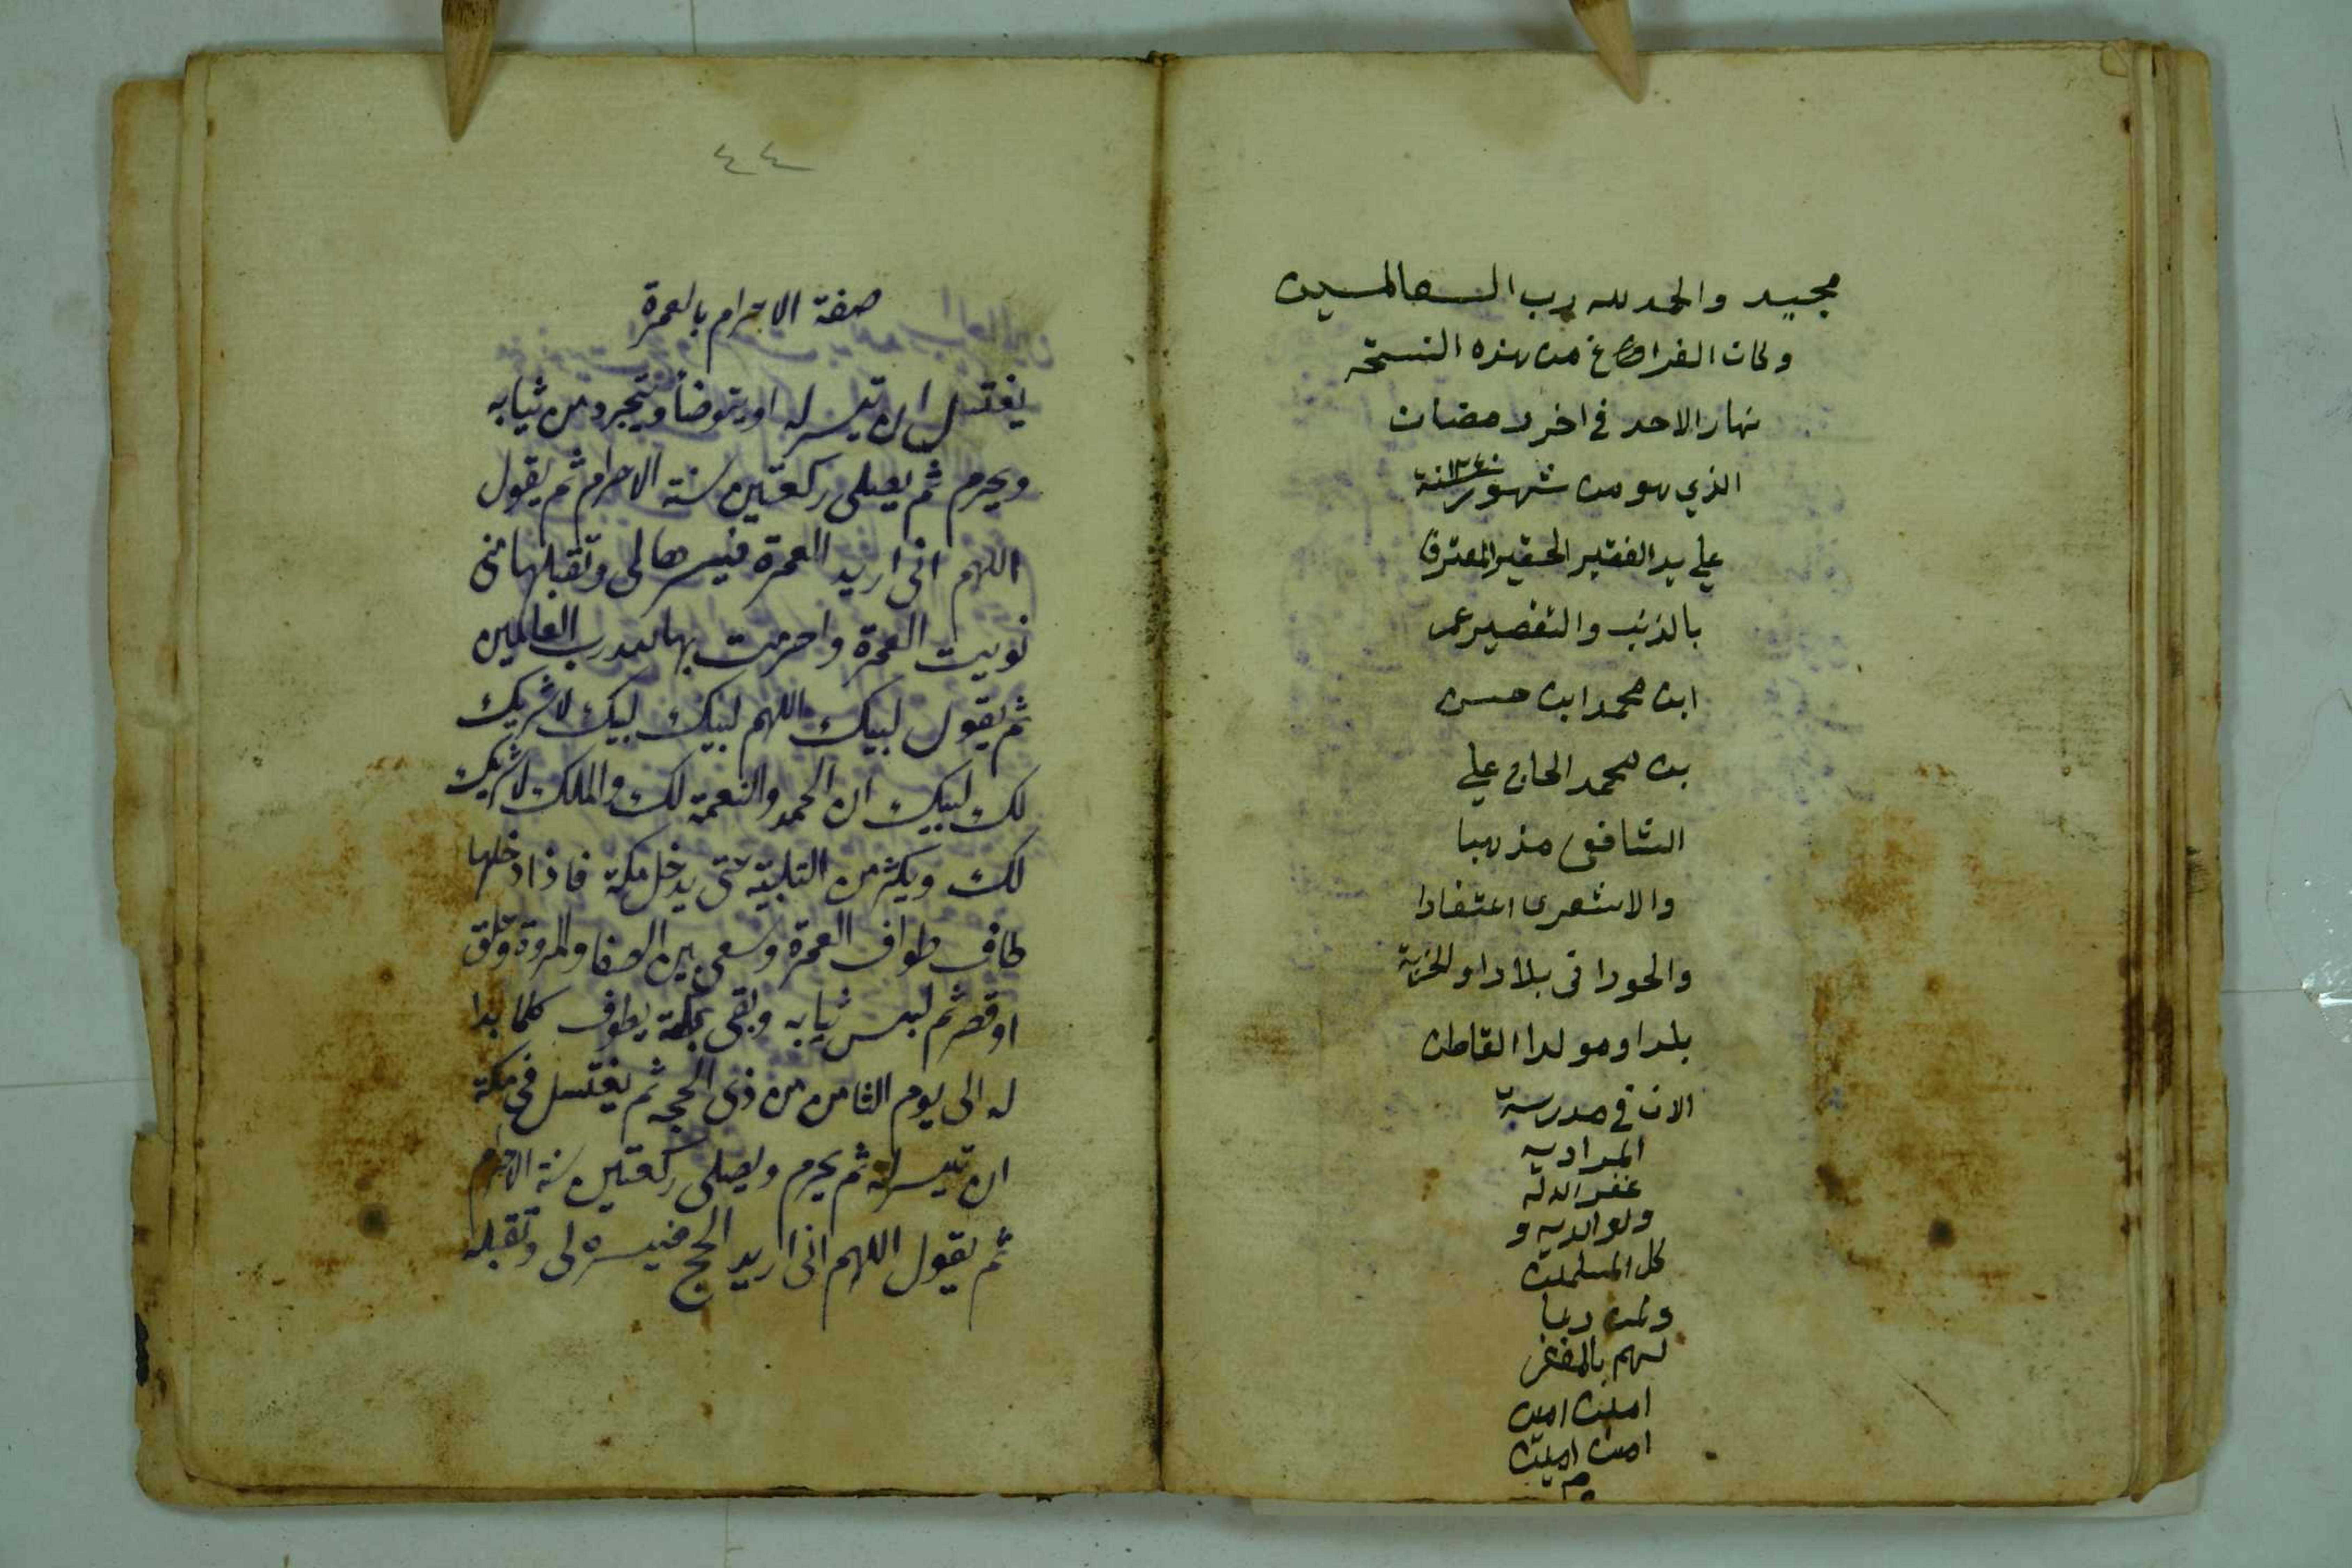 مجيد والحمد لله رب العالمين
وكان الفراغ من هذه النسخه
نهار الاحد في اخر رمضان
الذي هو من شهور سنة ١٢٤٠
علي يد الفقير الحقير المعترف
بالذنب والتقصير عمر
ابن محمد ابن حسن
بن محمد الحاج علي
الشافعي مذهبا
والاشعري اعتقادا
والحوراني بلادا و
بلدا ومولدا القاطن
الان في مدرسة
المرادية
غفر الله له
ولوالديه و
كل المسلمين
ولمن دعا
لهم بالمغفر
امين امين
امين امين
م
٤٤
صفة الاحرام بالعمرة
يغتسل ان تيسر له او يتوضأ ويتجرد من ثيابه
ويحرم ثم يصلى ركعتين سنة الاحرام ثم يقول
اللهم انى اريد العمرة فيسرها لى وتقبلها منى
نويت العمرة واحرمت بها لله رب العالمين
ثم يقول لبيك اللهم لبيك لبيك لا شريك
لك لبيك ان الحمد والنعمة لك والملك لا شريك
لك ويكثر من التلبية حتى يدخل مكة فاذا دخلها
طاف طواف العمرة وسعى بين الصفا والمروة وحلق
او قصر ثم لبس ثيابه وبقى بمكة يطوف كلما بدا
له الى يوم الثامن من ذى الحجه ثم يغتسل فى مكة
ان تيسر له ثم يحرم ويصلى ركعتين سنة الاحرام
ثم يقول اللهم انى اريد الحج فيسره لى وتقبله